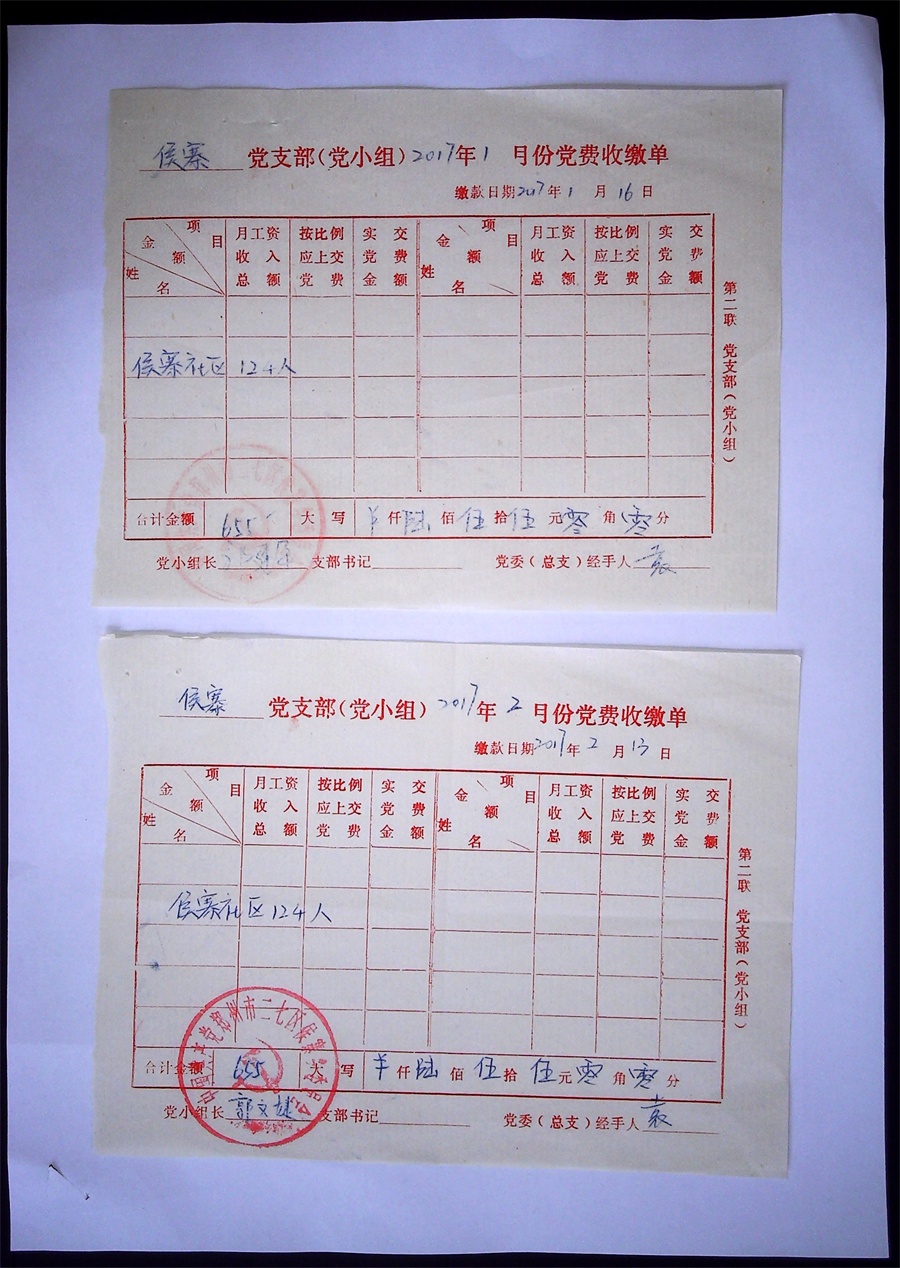 侯寨 党支部(党小组)2017年1 月份党费收缴单
缴款日期2017年1 月 16 日
项目 金额 姓名 月工资收入总额 按比例应上交党费 实交党费金额 项目 金额 姓名 月工资收入总额 按比例应上交党费 实交党费金额
侯寨社区 124人
合计金额 655 大写 ¥仟陆佰伍拾伍元零角零分
党小组长 支部书记 党委(总支)经手人 袁
第二联 党支部(党小组)
侯寨 党支部(党小组)2017年2月份党费收缴单
缴款日期2017年2月13日
项目 金额 姓名 月工资收入总额 按比例应上交党费 实交党费金额 项目 金额 姓名 月工资收入总额 按比例应上交党费 实交党费金额
侯寨社区124人
合计金额 655 大写 ¥仟陆佰伍拾伍元零角零分
党小组长 郭文 支部书记 党委(总支)经手人 袁
第二联 党支部(党小组)
中国共产党郑州市二七区侯寨